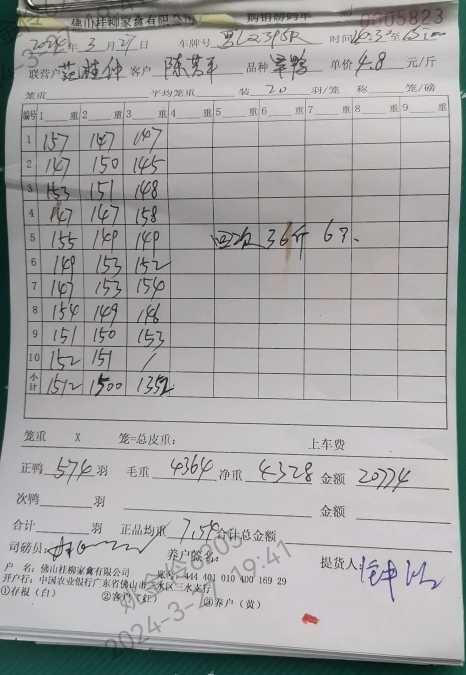 佛山桂柳家禽有限公司 购销磅码单 0005823
2024年3月27日 车牌号 时间
联营户 范桂仲 客户 品种 单价 4.8 元/斤
笼重 平均笼重 装 20 羽/笼 称 笼/磅
编号 1 重 2 重 3 重 4 重 5 重 6 重 7 重 8 重 9 重
1 157 147 147
2 147 150 145
3 153 151 148
4 147 147 158
5 155 149 149 36斤 6只
6 149 153 152
7 147 153 154
8 154 149 146
9 151 150 153
10 152 151 /
小计 1512 1500 1352
笼重 X 笼=总皮重: 上车费
正鸭 574 羽 毛重 4364 净重 4328 金额 20774
次鸭 羽 金额
合计 羽 正品均重 7.54 合计总金额
司磅员: 养户签名: 提货人:
户 名: 佛山桂柳家禽有限公司 账号: 444 401 010 400 169 29
开户行: 中国农业银行广东省佛山市三水区三水支行
①存根(白) ②客户(红) ③养户(黄)
2024-3-27 19:41